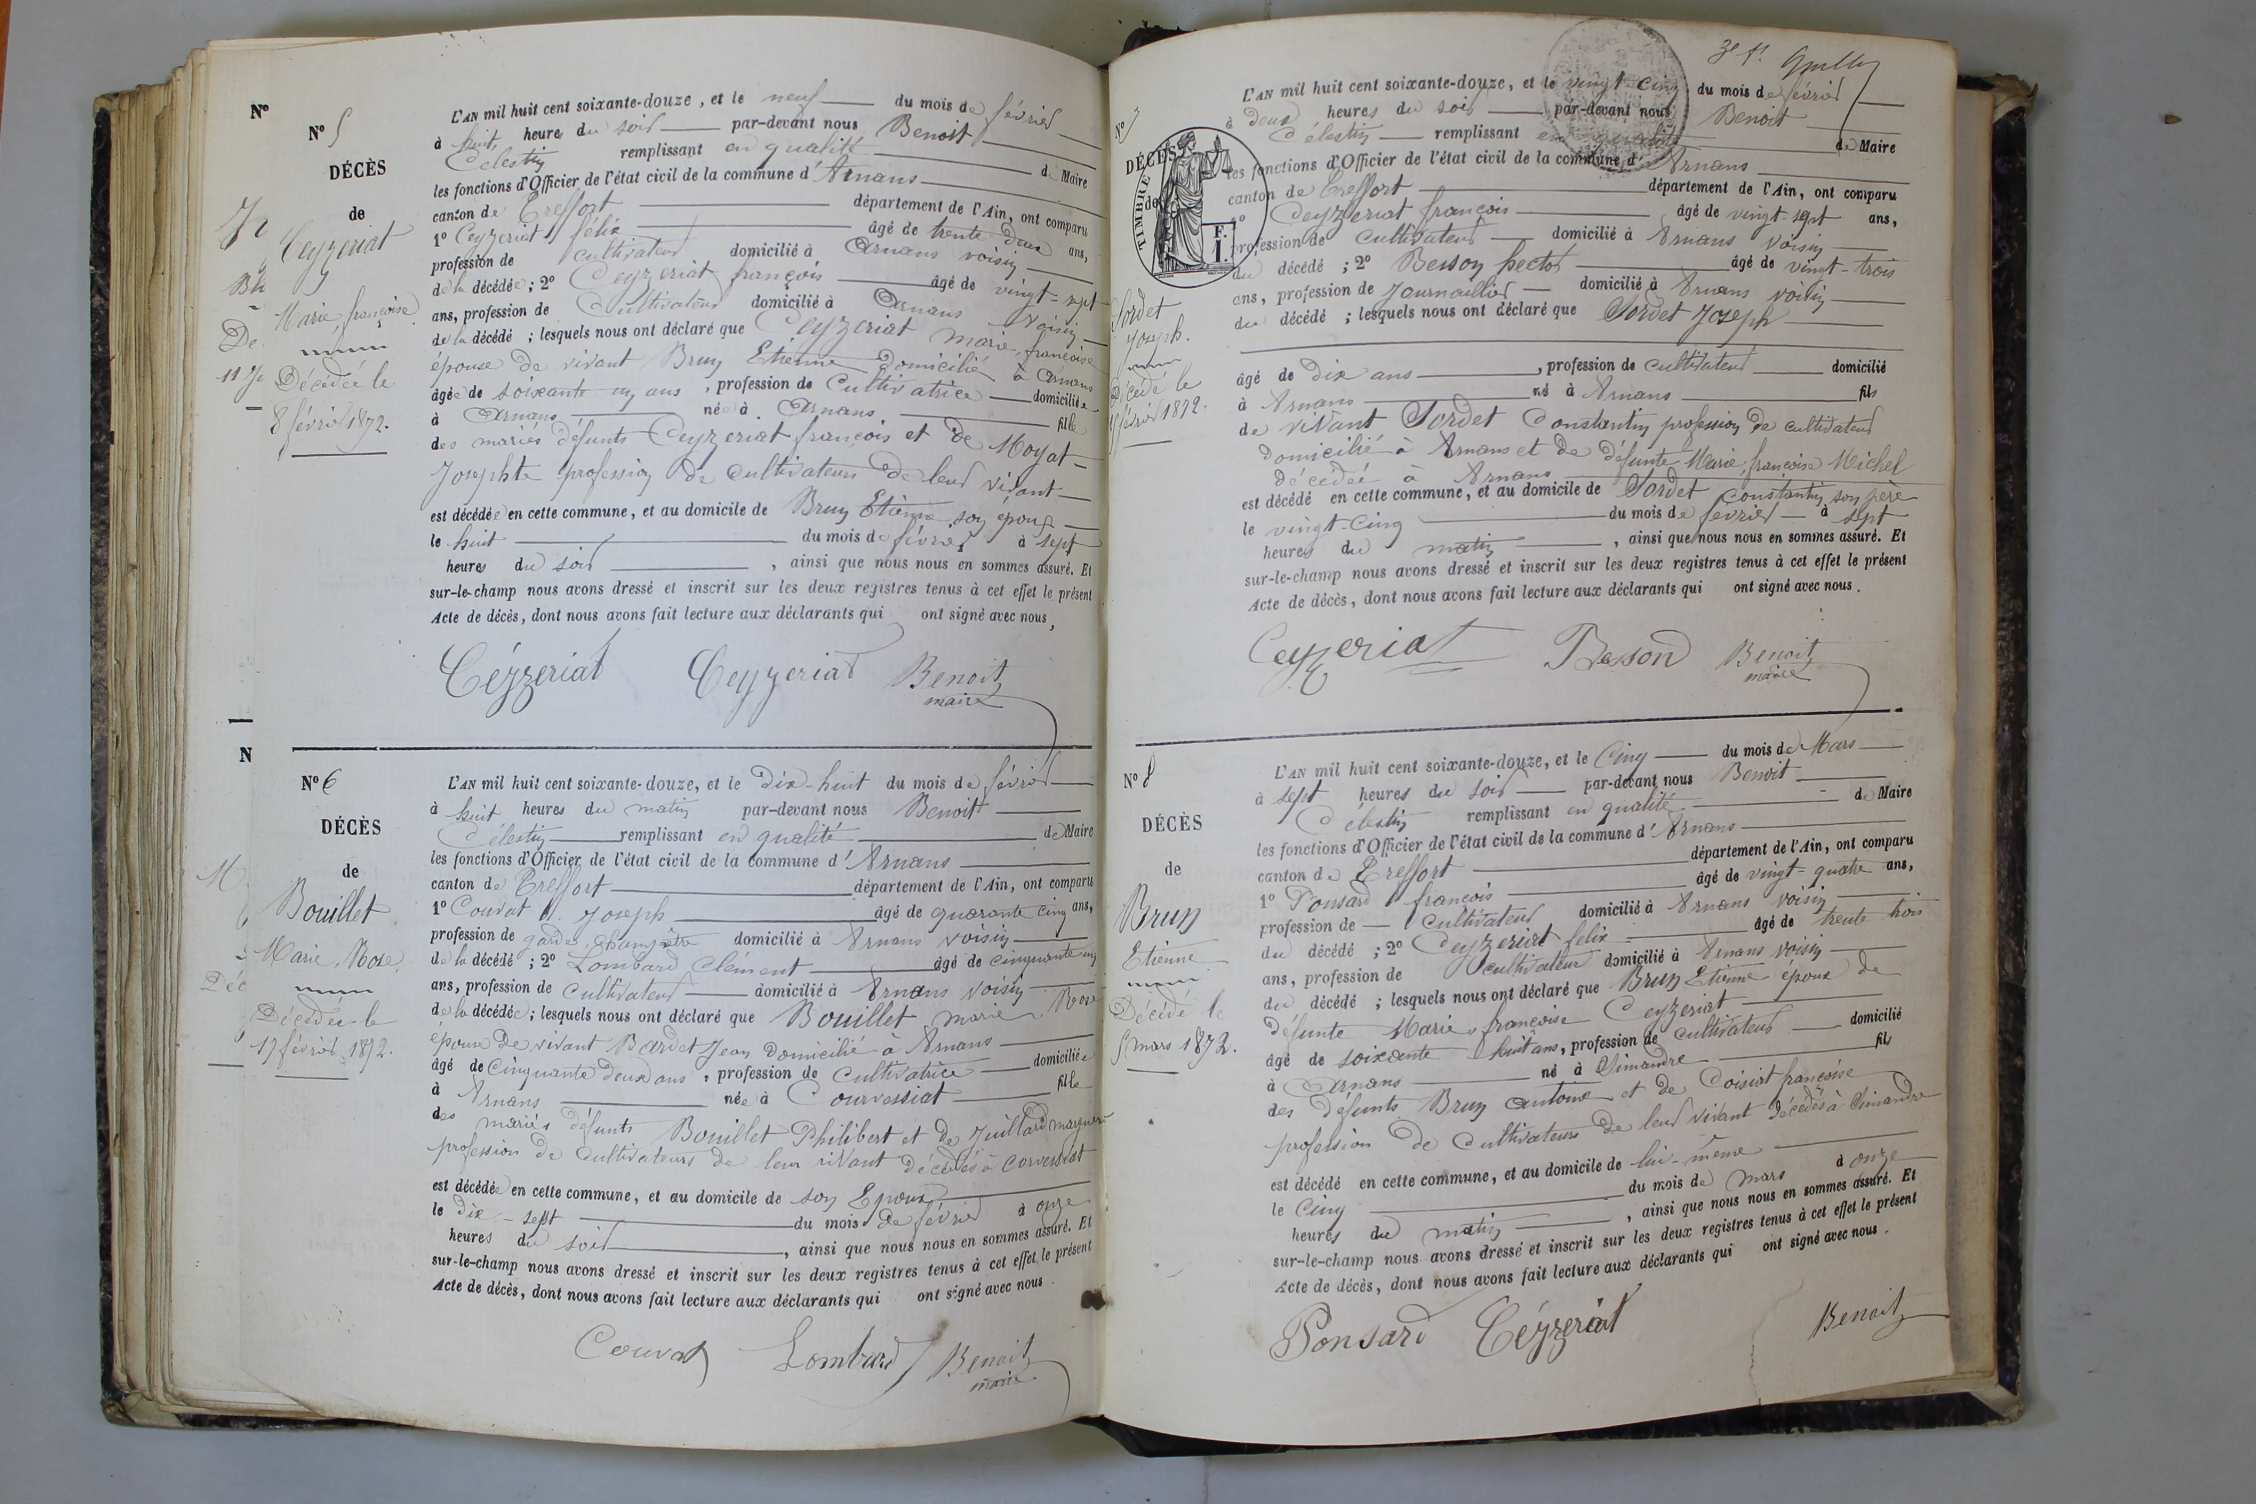 N° 5
DÉCÈS
de
Ceyzeriat
Marie, françoise
Décédée le
8 février 1872.
L'AN mil huit cent soixante-douze, et le neuf du mois de février
à huit heures du soir par-devant nous Benoit
Célestin remplissant en qualité de Maire
les fonctions d'Officier de l'état civil de la commune d'Arnans
canton de Treffort département de l'Ain, ont comparu
1° Ceyzeriat félix âgé de trente deux ans,
profession de cultivateur domicilié à Arnans voisin
de la décédée; 2° Ceyzeriat françois âgé de vingt-sept
ans, profession de Cultivateur domicilié à Arnans voisin
de la décédé; lesquels nous ont déclaré que Ceyzeriat marie, françoise
épouse de vivant Brun Etienne domicilié à Arnans
âgée de soixante un ans, profession de Cultivatrice domiciliée
à Arnans née à Arnans fille
des mariés défunts Ceyzeriat françois et de Moyat
Josephte profession de cultivateurs de leur vivant
est décédée en cette commune, et au domicile de Brun Etienne son époux
le huit du mois de février à sept
heures du soir, ainsi que nous nous en sommes assuré. Et
sur-le-champ nous avons dressé et inscrit sur les deux registres tenus à cet effet le présent
Acte de décès, dont nous avons fait lecture aux déclarants qui ont signé avec nous,
Céyzeriat Ceyzeriat Benoit
maire
N° 6
DÉCÈS
de
Bouillet
Marie, Rose
Décédée le
17 février 1872.
L'AN mil huit cent soixante-douze, et le dix-huit du mois de février
à huit heures du matin par-devant nous Benoit
Célestin remplissant en qualité de Maire
les fonctions d'Officier de l'état civil de la commune d'Arnans
canton de Treffort département de l'Ain, ont comparu
1° Couvat Joseph âgé de quarante cinq ans,
profession de garde champêtre domicilié à Arnans voisin
de la décédé; 2° Lombard Clément âgé de cinquante un
ans, profession de cultivateur domicilié à Arnans voisin
de la décédée; lesquels nous ont déclaré que Bouillet marie Rose
épouse de vivant Bardet Jean domicilié à Arnans
âgé de Cinquante deux ans, profession de cultivatrice domiciliée
à Arnans née à Courvessiat fille
des mariés défunts Bouillet Philibert et de Juillard
profession de cultivateurs de leur vivant décédés à Corvessiat
est décédée en cette commune, et au domicile de son Epoux
le dix-sept du mois de février à onze
heures du soir, ainsi que nous nous en sommes assuré. Et
sur-le-champ nous avons dressé et inscrit sur les deux registres tenus à cet effet le présent
Acte de décès, dont nous avons fait lecture aux déclarants qui ont signé avec nous.
Couvat Lombard Benoit
maire
N° 7
DÉCÈS
de
TIMBRE
F.
1.
Sordet
Joseph.
Décédé le
février 1872.
L'AN mil huit cent soixante-douze, et le vingt-cinq du mois de février
à deux heures du soir par-devant nous Benoit
Célestin remplissant en qualité de Maire
les fonctions d'Officier de l'état civil de la commune d'Arnans
canton de Treffort département de l'Ain, ont comparu
1° Ceyzeriat françois âgé de vingt-sept ans,
profession de cultivateur domicilié à Arnans voisin
du décédé; 2° Besson hector âgé de vingt-trois
ans, profession de Journaillier domicilié à Arnans voisin
du décédé; lesquels nous ont déclaré que Sordet Joseph
âgé de dix ans, profession de cultivateur domicilié
à Arnans né à Arnans fils
de vivant Sordet Constantin profession de cultivateur
domicilié à Arnans et de défunte Marie, françoise Michel
décédée à Arnans
est décédé en cette commune, et au domicile de Sordet Constantin son père
le vingt-cinq du mois de février à sept
heures du matin, ainsi que nous nous en sommes assuré. Et
sur-le-champ nous avons dressé et inscrit sur les deux registres tenus à cet effet le présent
Acte de décès, dont nous avons fait lecture aux déclarants qui ont signé avec nous.
Ceyzeriat Besson Benoit
maire
N° 8
DÉCÈS
de
Brun
Etienne
Décédé le
5 mars 1872.
L'AN mil huit cent soixante-douze, et le Cinq du mois de Mars
à sept heures du soir par-devant nous Benoit
Célestin remplissant en qualité de Maire
les fonctions d'Officier de l'état civil de la commune d'Arnans
canton de Treffort département de l'Ain, ont comparu
1° Ponsard françois âgé de vingt-quatre ans,
profession de cultivateur domicilié à Arnans voisin
du décédé; 2° Ceyzeriat felix âgé de trente trois
ans, profession de cultivateur domicilié à Arnans voisin
du décédé; lesquels nous ont déclaré que Brun Etienne époux de
défunte Marie françoise Ceyzeriat
âgé de soixante huit ans, profession de cultivateur domicilié
à Arnans né à Simandre fils
des défunts Brun antoine et de Doisiat françoise
profession de Cultivateurs de leur vivant décédés à Simandre
est décédé en cette commune, et au domicile de lui-même
le Cinq du mois de mars à onze
heures du matin, ainsi que nous nous en sommes assuré. Et
sur-le-champ nous avons dressé et inscrit sur les deux registres tenus à cet effet le présent
Acte de décès, dont nous avons fait lecture aux déclarants qui ont signé avec nous.
Ponsard Céyzeriat Benoit